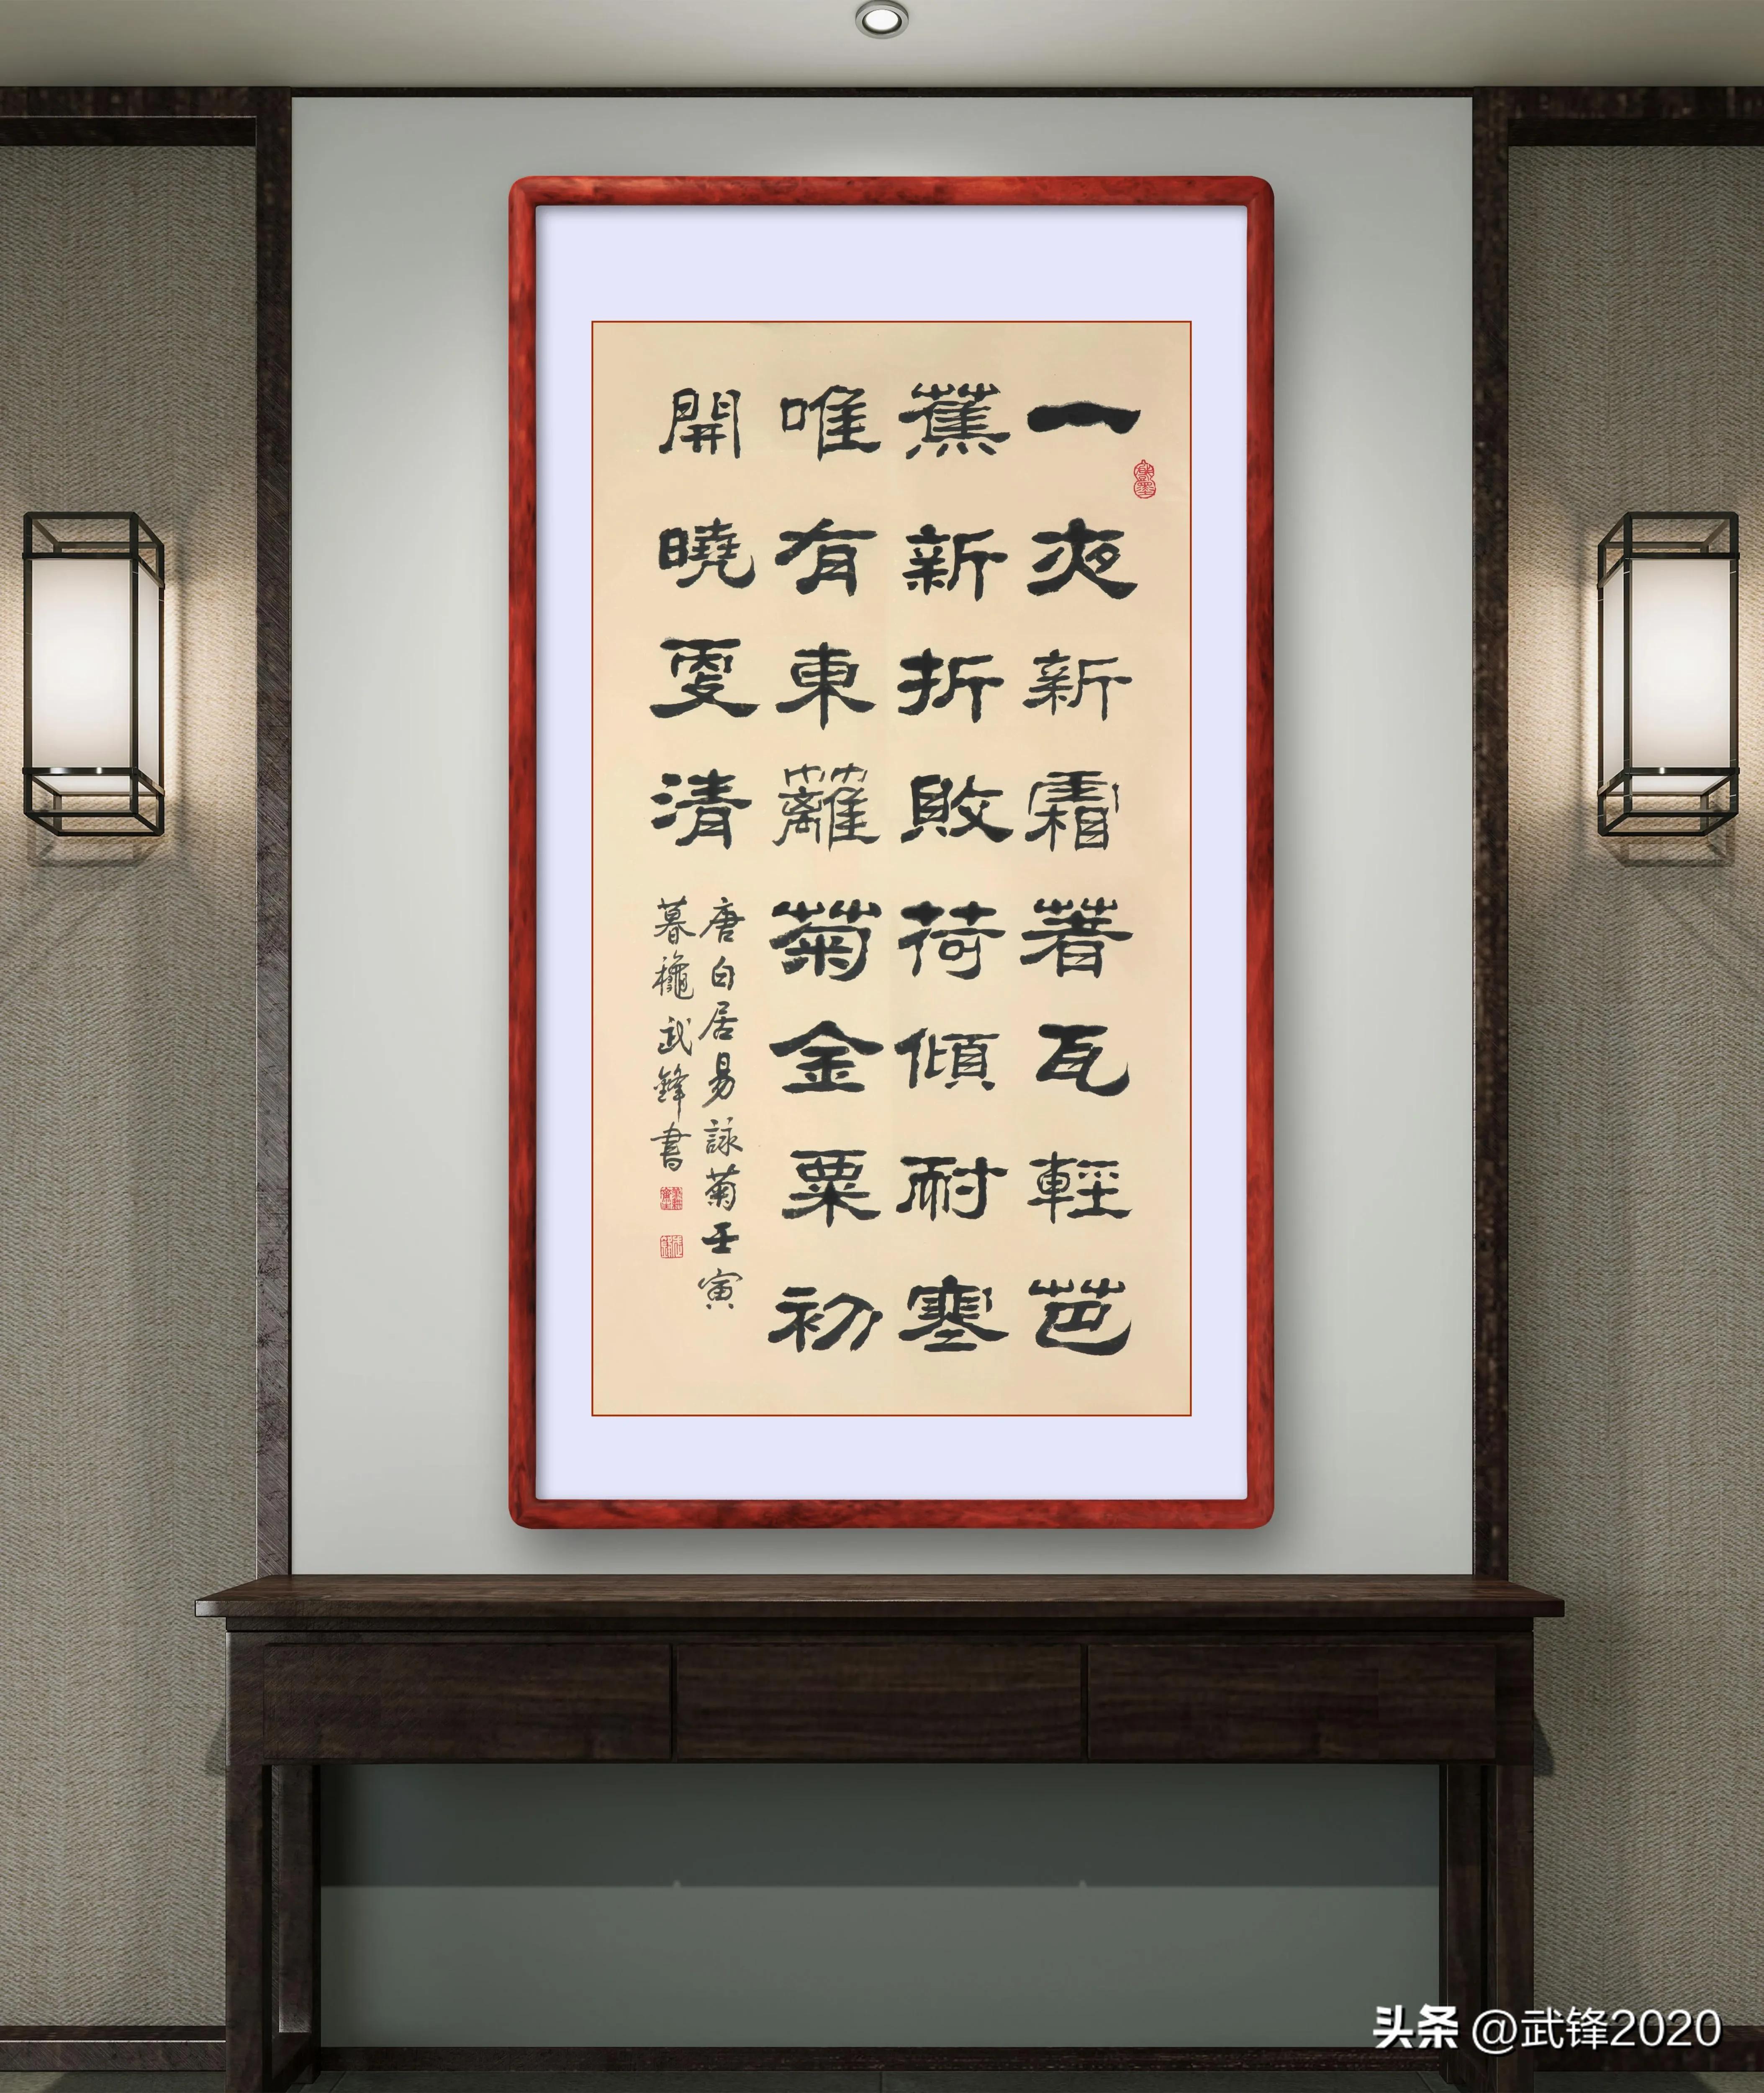 一夜新霜著瓦輕芭
蕉新折敗荷傾耐寒
唯有東蘺菊金粟初
開曉更清
唐白居易詠菊壬寅
暮龝武鋒書
头条 @武锋2020